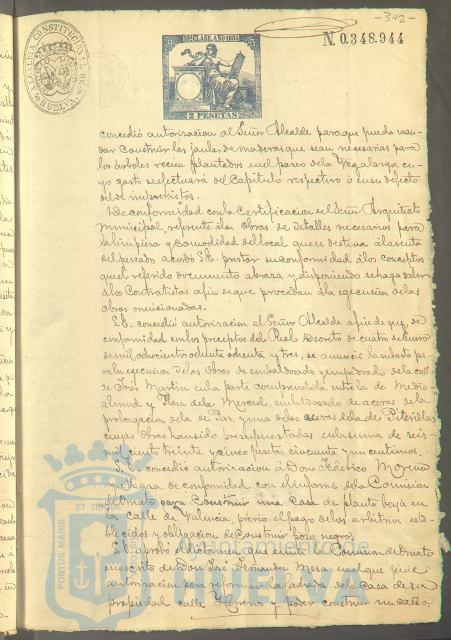 -342-
ALCALDIA CONSTITUCIONAL DE HUELVA
10ª CLASE. AÑO 1884
N. 0.348.944
2 PESETAS
concedió autorizacion al Señor Alcalde para que pueda man-
dar construir las jaulas de maderas que sean necesarias para
los árboles recien plantados en el paseo de la Vega larga, cu-
yo gasto se efectuará del Capítulo respectivo ó en su defecto
del de imprevistos.
De conformidad con la Certificacion del Señor Arquitecto
municipal referente á las Obras de detalles necesarios para
la limpieza y comodidad del local que se destina á la venta
del pescado acordó S.E. prestar su conformidad á los conceptos
que el referido documento abraza y disponiendo se haga saber
á los Contratistas afin de que procedan á la egecucion de las
obras mencionadas.
S.E. concedió autorizacion al Señor Alcalde afin de que, de
conformidad con los preceptos del Real Decreto de cuatro de Enero
de mil ochocientos ochenta y tres, se anuncie la subasta pa-
ra la egecucion de las Obras de embaldosado y empedrado de la calle
de Ines Martin en la parte comprendida entre la de Medio
almud y Plaza de la Merced, embaldosado de aceras de la
prolongacion de la de Paz, y una de las aceras de la de Pterillas
cuyas Obras han sido presupuestadas en la suma de seis
mil ciento treinta y cinco pesetas cincuenta y un centimos.
S.E. concedió autorizacion á Don Federico Moreno
de conformidad con el informe de la Comision
de Ornato para Construir una Casa de planta baja en
la calle de Valencia, previo el pago de los arbitrios esta-
blecidos y obligacion de Construir pozo negro.
S.E. aprobó el dictámen que la Comision de Ornato
en escrito de Don José Hernandez Mesa en el que pide
autorizacion para reformar la fachada de la Casa de su
propiedad calle Herreros y poder construir
ET TERRAE
PORTUS MARIS
Ayuntamiento de
HUELVA